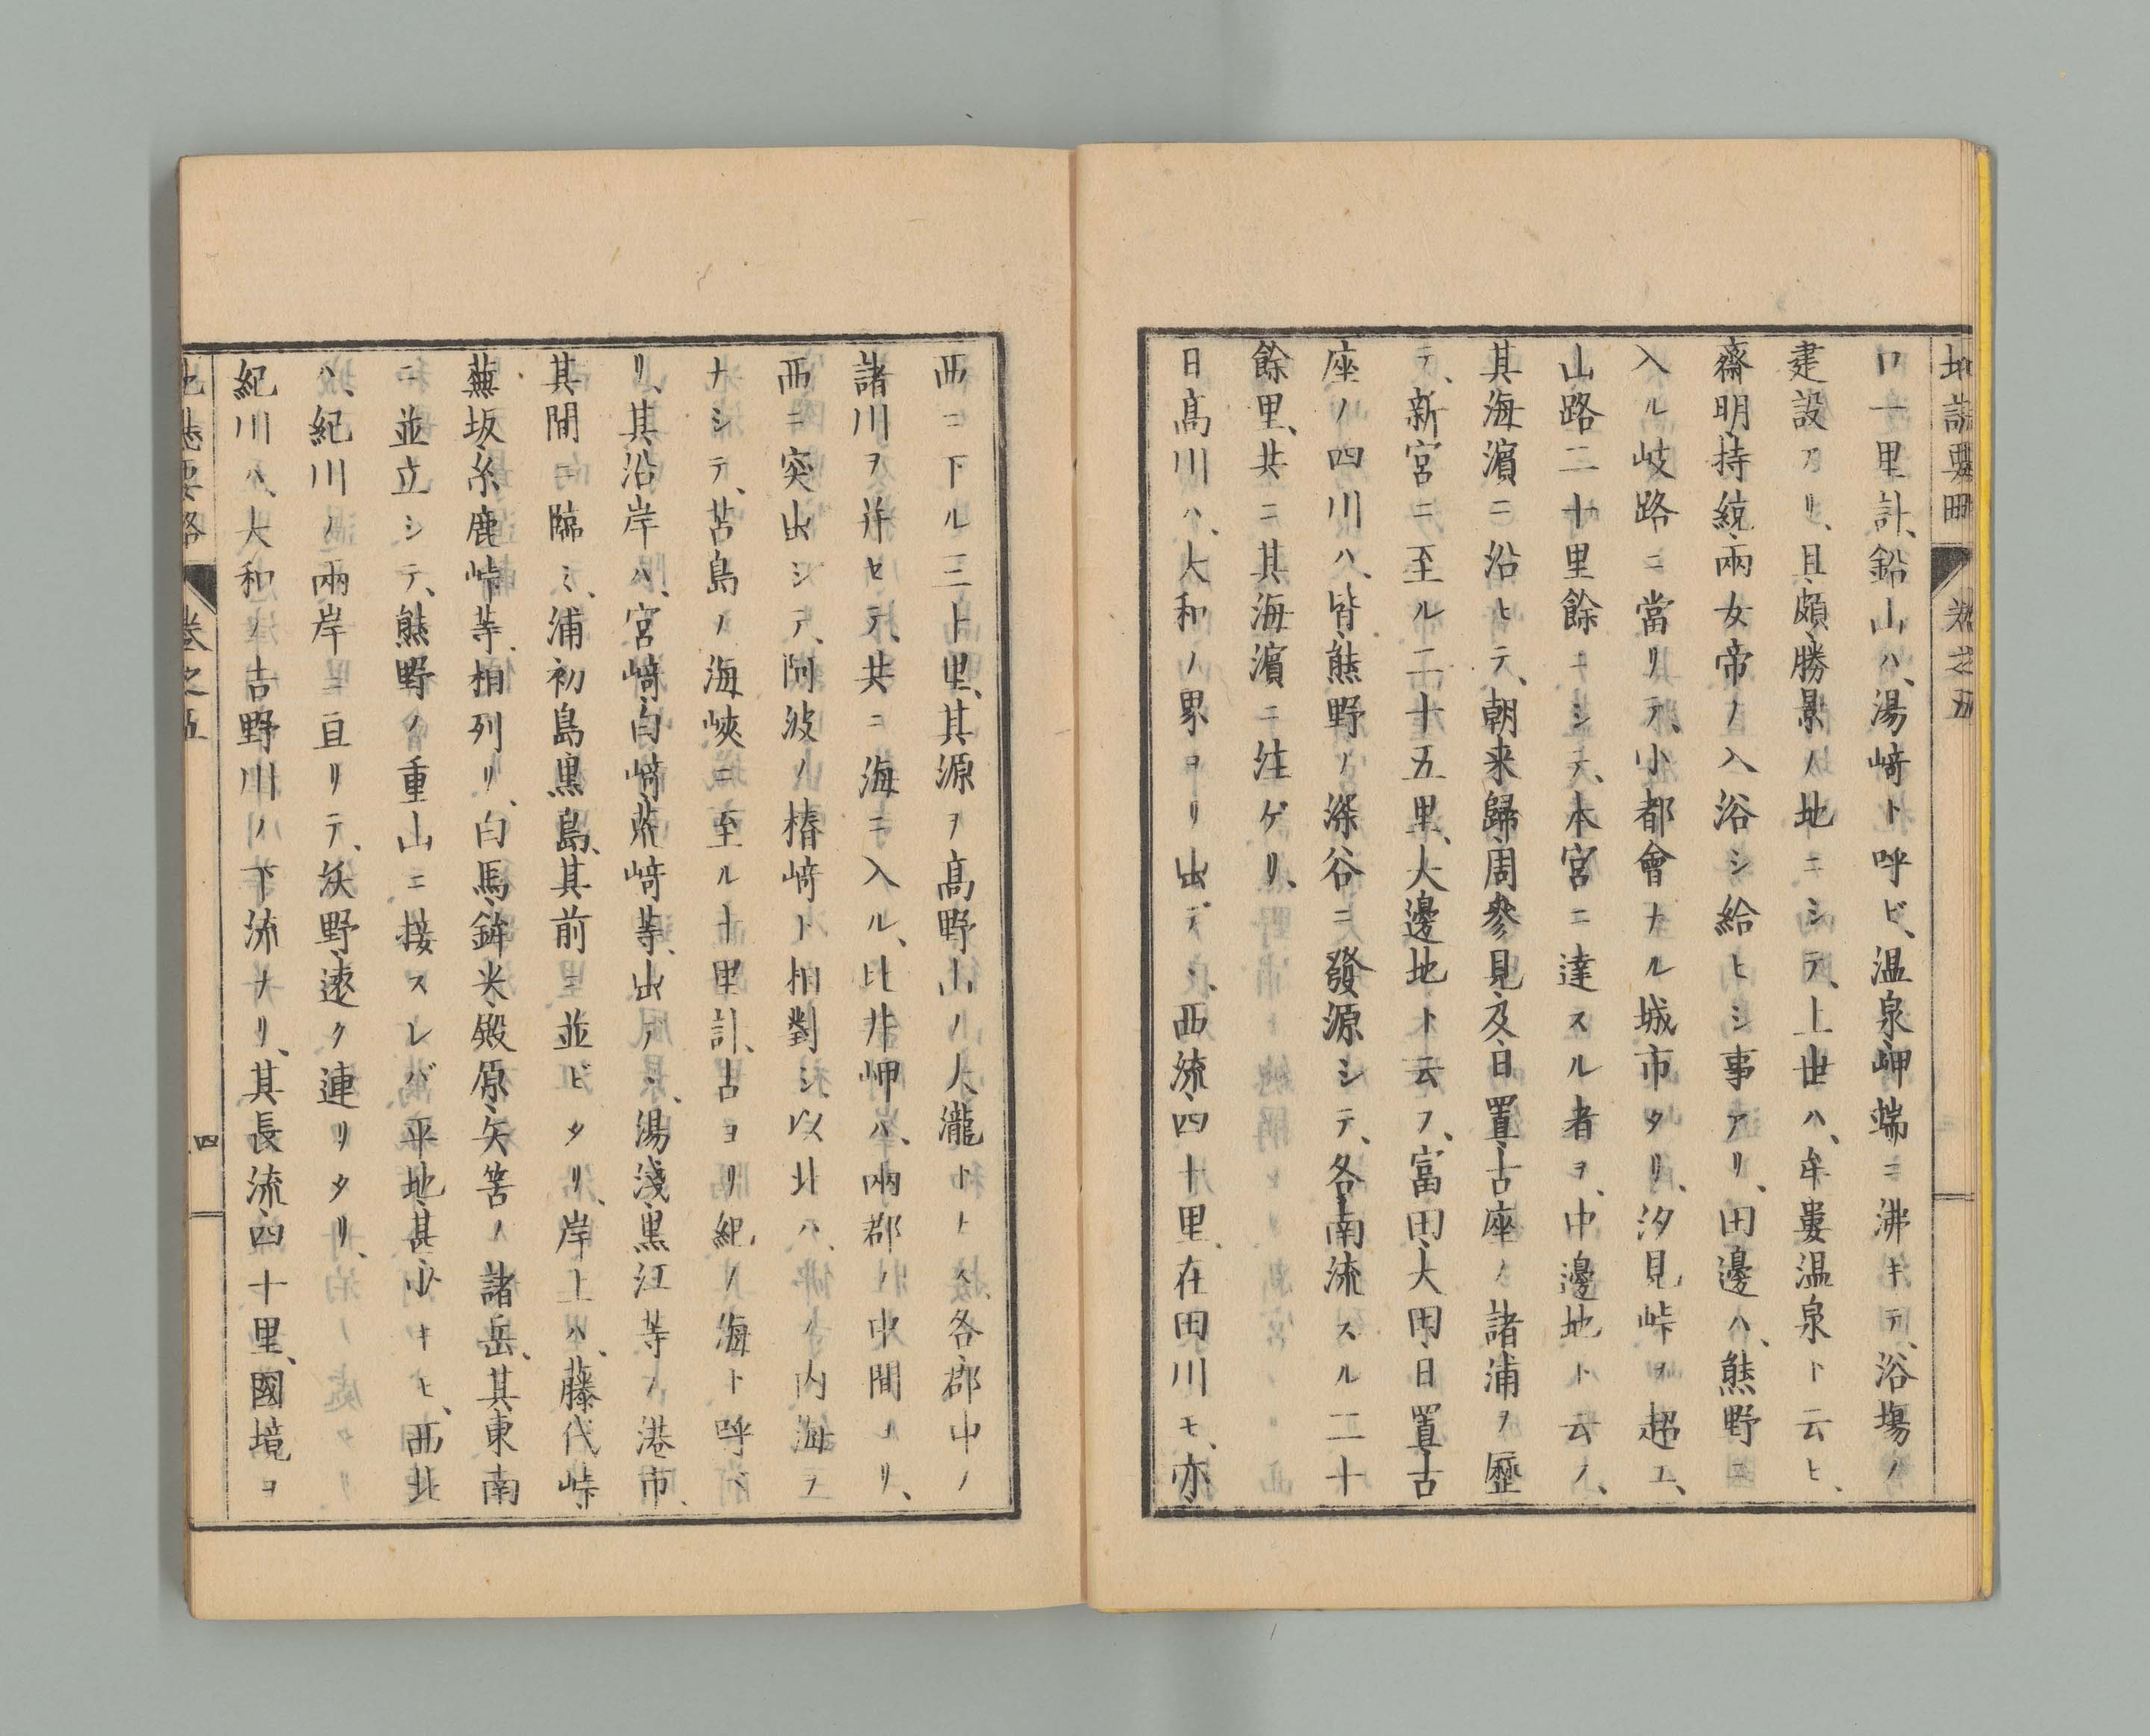 地誌要略 卷之五
口一里計、鉛山ハ、湯﨑ト呼ビ、温泉岬端ニ沸キテ、浴場ノ
建設アリ、且頗勝景ノ地ニシテ、上世ハ、牟婁温泉ト云ヒ、
齋明持統、兩女帝ノ入浴シ給ヒシ事アリ、田邊ハ、熊野ニ
入ル岐路ニ當リテ、小都會ナル城市タリ、汐見峠ヲ超エ、
山路二十里餘ニシテ、本宮ニ達スル者ヲ、中邊地ト云ノ、
其海濵ニ沿ヒテ、朝来歸周參見及日置古座ノ諸浦ヲ歴
テ、新宮ニ至ル二十五里、大邊地ト云フ、富田、大田、日置古
座ノ四川ハ、皆熊野ノ深谷ニ發源シテ、各南流スル二十
餘里、共ニ其海濵ニ注ゲリ、
日高川ハ、大和ノ界ヨリ出デヽ、西流四十里、在田川モ、亦
西ニ下ル三十里、其源ヲ高野山ノ大瀧トヽ、各郡中ノ
諸川ヲ并セテ、共ニ海ニ入ル、比井岬ハ、兩郡ノ中間ノリ、
西ニ突出シテ、阿波ノ椿﨑ト相對シ、以北ハ、ノ内海ヲ
ナシテ、苫島ノ海峽ニ至ル十里計、古ヨリ紀ノ海ト呼ベ
リ、其沿岸ハ、宮﨑、白﨑、蕪﨑等、出デヽ、湯淺、黒江等ノ港市、
其間ニ臨ミ、浦初島黒島、其前ニ並ビタリ、岸上ハ、藤代峠
蕪坂、糸鹿峠等、相列リ、白馬、鉾米、殿原、矢筈ノ諸岳、其東南
ニ並立シテ、熊野ノ重山ニ接スレバ平地、甚少キヒ、西北
ハ、紀川ノ兩岸ニ亘リテ、沃野遠ク連リタリ、
紀川ハ、大和ノ吉野川ノ下流ナリ、其長流四十里、國境ヨ
地誌要略 卷之五 四